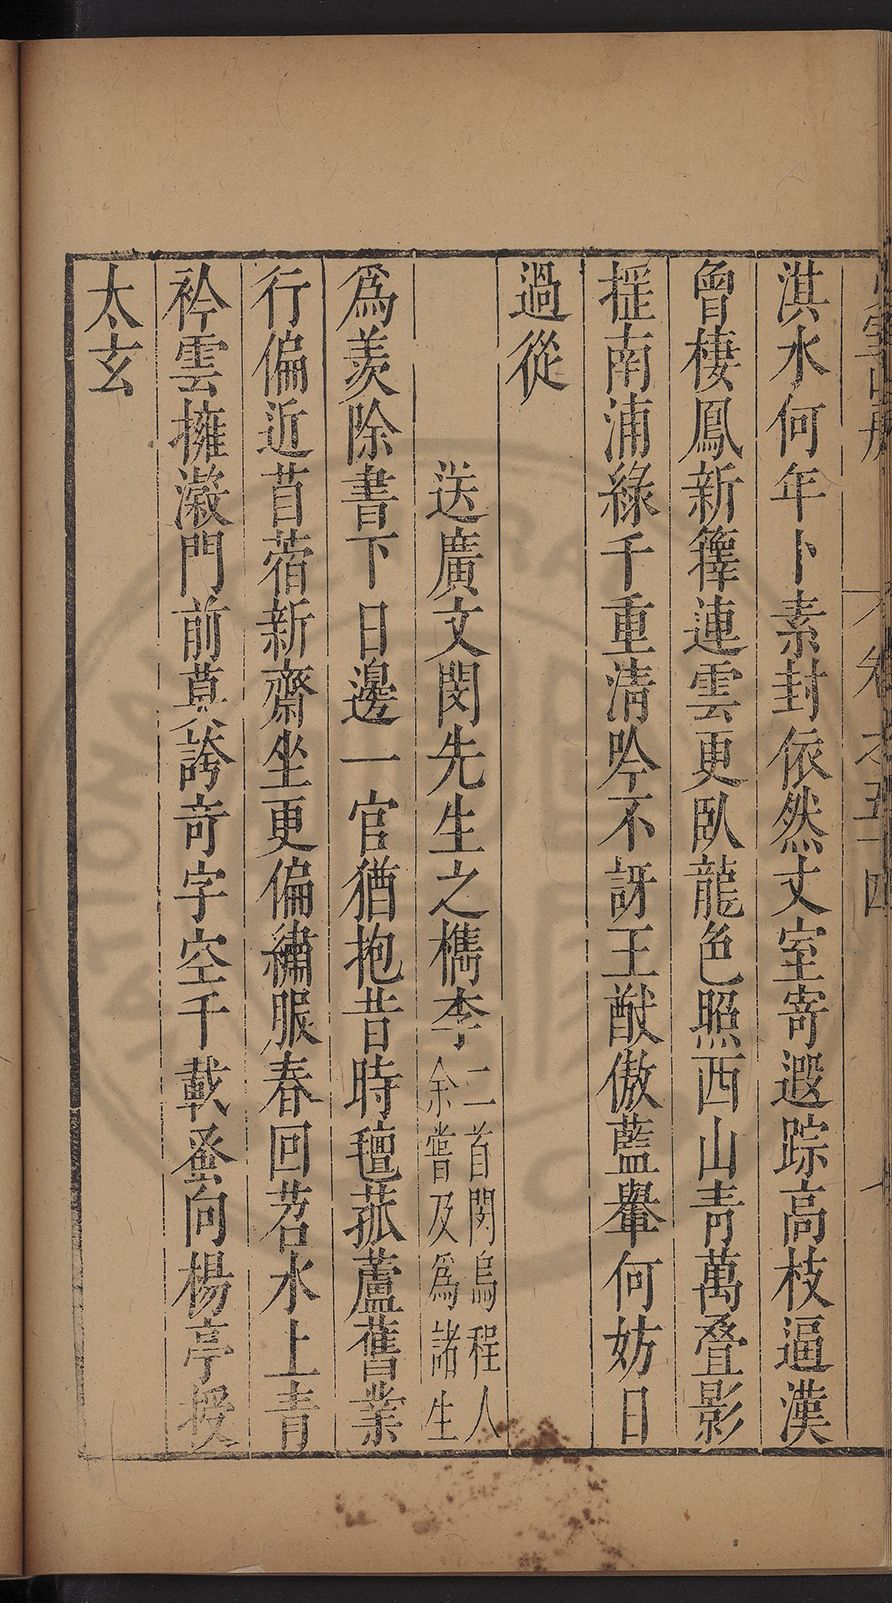 卷之五十四
淇水何年卜素封依然丈室寄遐踪高枝逼漢
曾棲鳳新籜連雲更臥龍色照西山靑萬疊影
搖南浦綠千重淸吟不訝王猷傲藍轝何妨日
過從
送廣文閔先生之檇李
二首閔烏程人
余嘗及爲諸生
爲羨除書下日邊一官猶抱昔時氊菰蘆舊業
行偏近苜蓿新齋坐更偏繡服春回苕水上青
衿雲擁瀔門前莫誇奇字空千載蚤向楊亭授
太玄